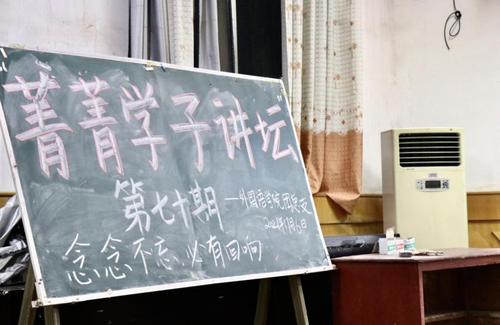 菁菁学子讲坛
第七十期
——外国语学院团总支
2021年1月6日
念念不忘,必有回响